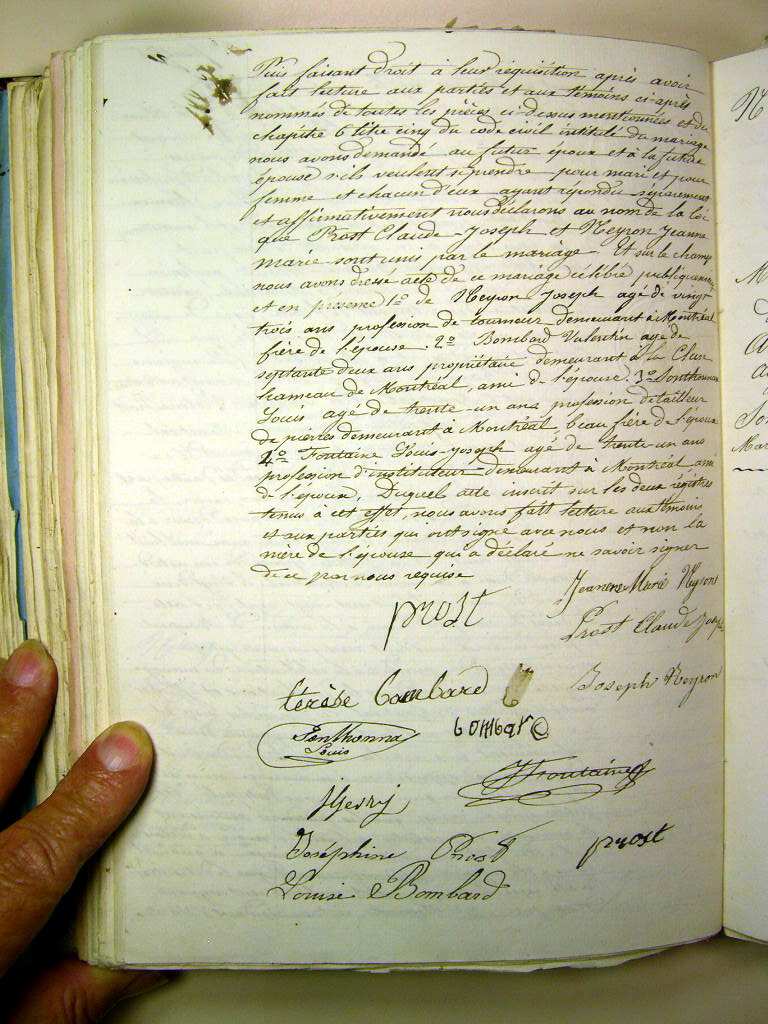 Puis faisant droit à leur réquisition après avoir
fait lecture aux parties et aux témoins ci-après
nommés de toutes les pièces ci-dessus mentionnées et du
chapitre 6 titre cinq du code civil intitulé du mariage
nous avons demandé au futur époux et à la future
épouse s'ils veulent se prendre pour mari et pour
femme et chacun d'eux ayant répondu séparément
et affirmativement nous déclarons au nom de la loi
que Prost Claude-Joseph et Neyron Jeanne
Marie sont unis par le mariage. Et sur le champ
nous avons dressé acte de ce mariage célébré publiquement
et en présence 1º de Neyron Joseph agé de vingt
trois ans profession de tourneur demeurant à Montréal
frère de l'épouse. 2º Bombard Valentin agé de
septante deux ans propriétaire demeurant à la Cluse
hameau de Montréal, ami de l'épouse. 3º Sonthonnax
Louis agé de trente-un ans profession de tailleur
de pierres demeurant à Montréal, beau frère de l'époux
4º Fontaine Louis-Joseph agé de trente-un ans
profession d'instituteur demeurant à Montréal ami
de l'époux. Duquel acte inscrit sur les deux régistres
tenus à cet effet, nous avons fait lecture aux témoins
et aux parties qui ont signé avec nous et non la
mère de l'épouse qui a déclaré ne savoir signer
de ce par nous requise
Jeanne Marie Neyron
prost
Prost Claude Joseph
térèse Bombard
Joseph Neyron
Sonthonna
Louis
bombard
Fontaine
Joséphine Prost
prost
Louise Bombard